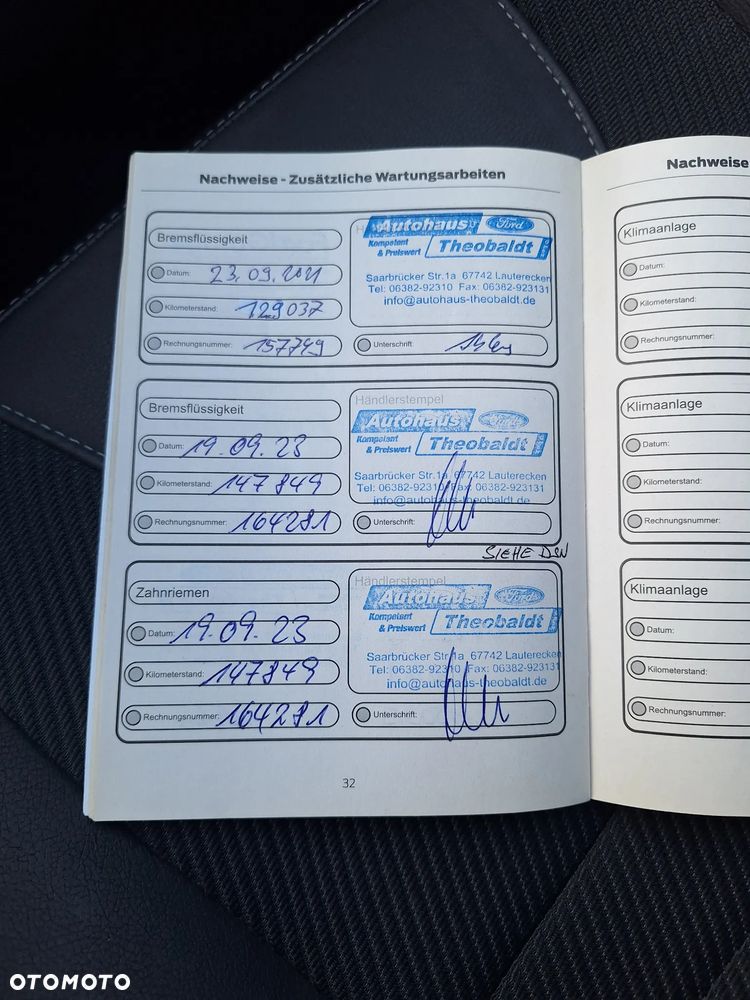 Nachweise - Zusätzliche Wartungsarbeiten
Bremsflüssigkeit
Datum: 23.09.2021
Kilometerstand: 129037
Rechnungsnummer: 157749
Autohaus Ford
Kompetent & Preiswert Theobaldt
Saarbrücker Str.1a 67742 Lauterecken
Tel: 06382-92310 Fax: 06382-923131
info@autohaus-theobaldt.de
Unterschrift:
Bremsflüssigkeit
Datum: 19.09.23
Kilometerstand: 147849
Rechnungsnummer: 164281
Händlerstempel
Autohaus Ford
Kompetent & Preiswert Theobaldt
Saarbrücker Str.1a 67742 Lauterecken
Tel: 06382-92310 Fax: 06382-923131
info@autohaus-theobaldt.de
Unterschrift:
SIEHE
Zahnriemen
Datum: 19.09.23
Kilometerstand: 147849
Rechnungsnummer: 164281
Händlerstempel
Autohaus Ford
Kompetent & Preiswert Theobaldt
Saarbrücker Str.1a 67742 Lauterecken
Tel: 06382-92310 Fax: 06382-923131
info@autohaus-theobaldt.de
Unterschrift:
32
Nachweise
Klimaanlage
Datum:
Kilometerstand:
Rechnungsnummer:
Klimaanlage
Datum:
Kilometerstand:
Rechnungsnummer:
Klimaanlage
Datum:
Kilometerstand:
Rechnungsnummer:
OTOMOTO